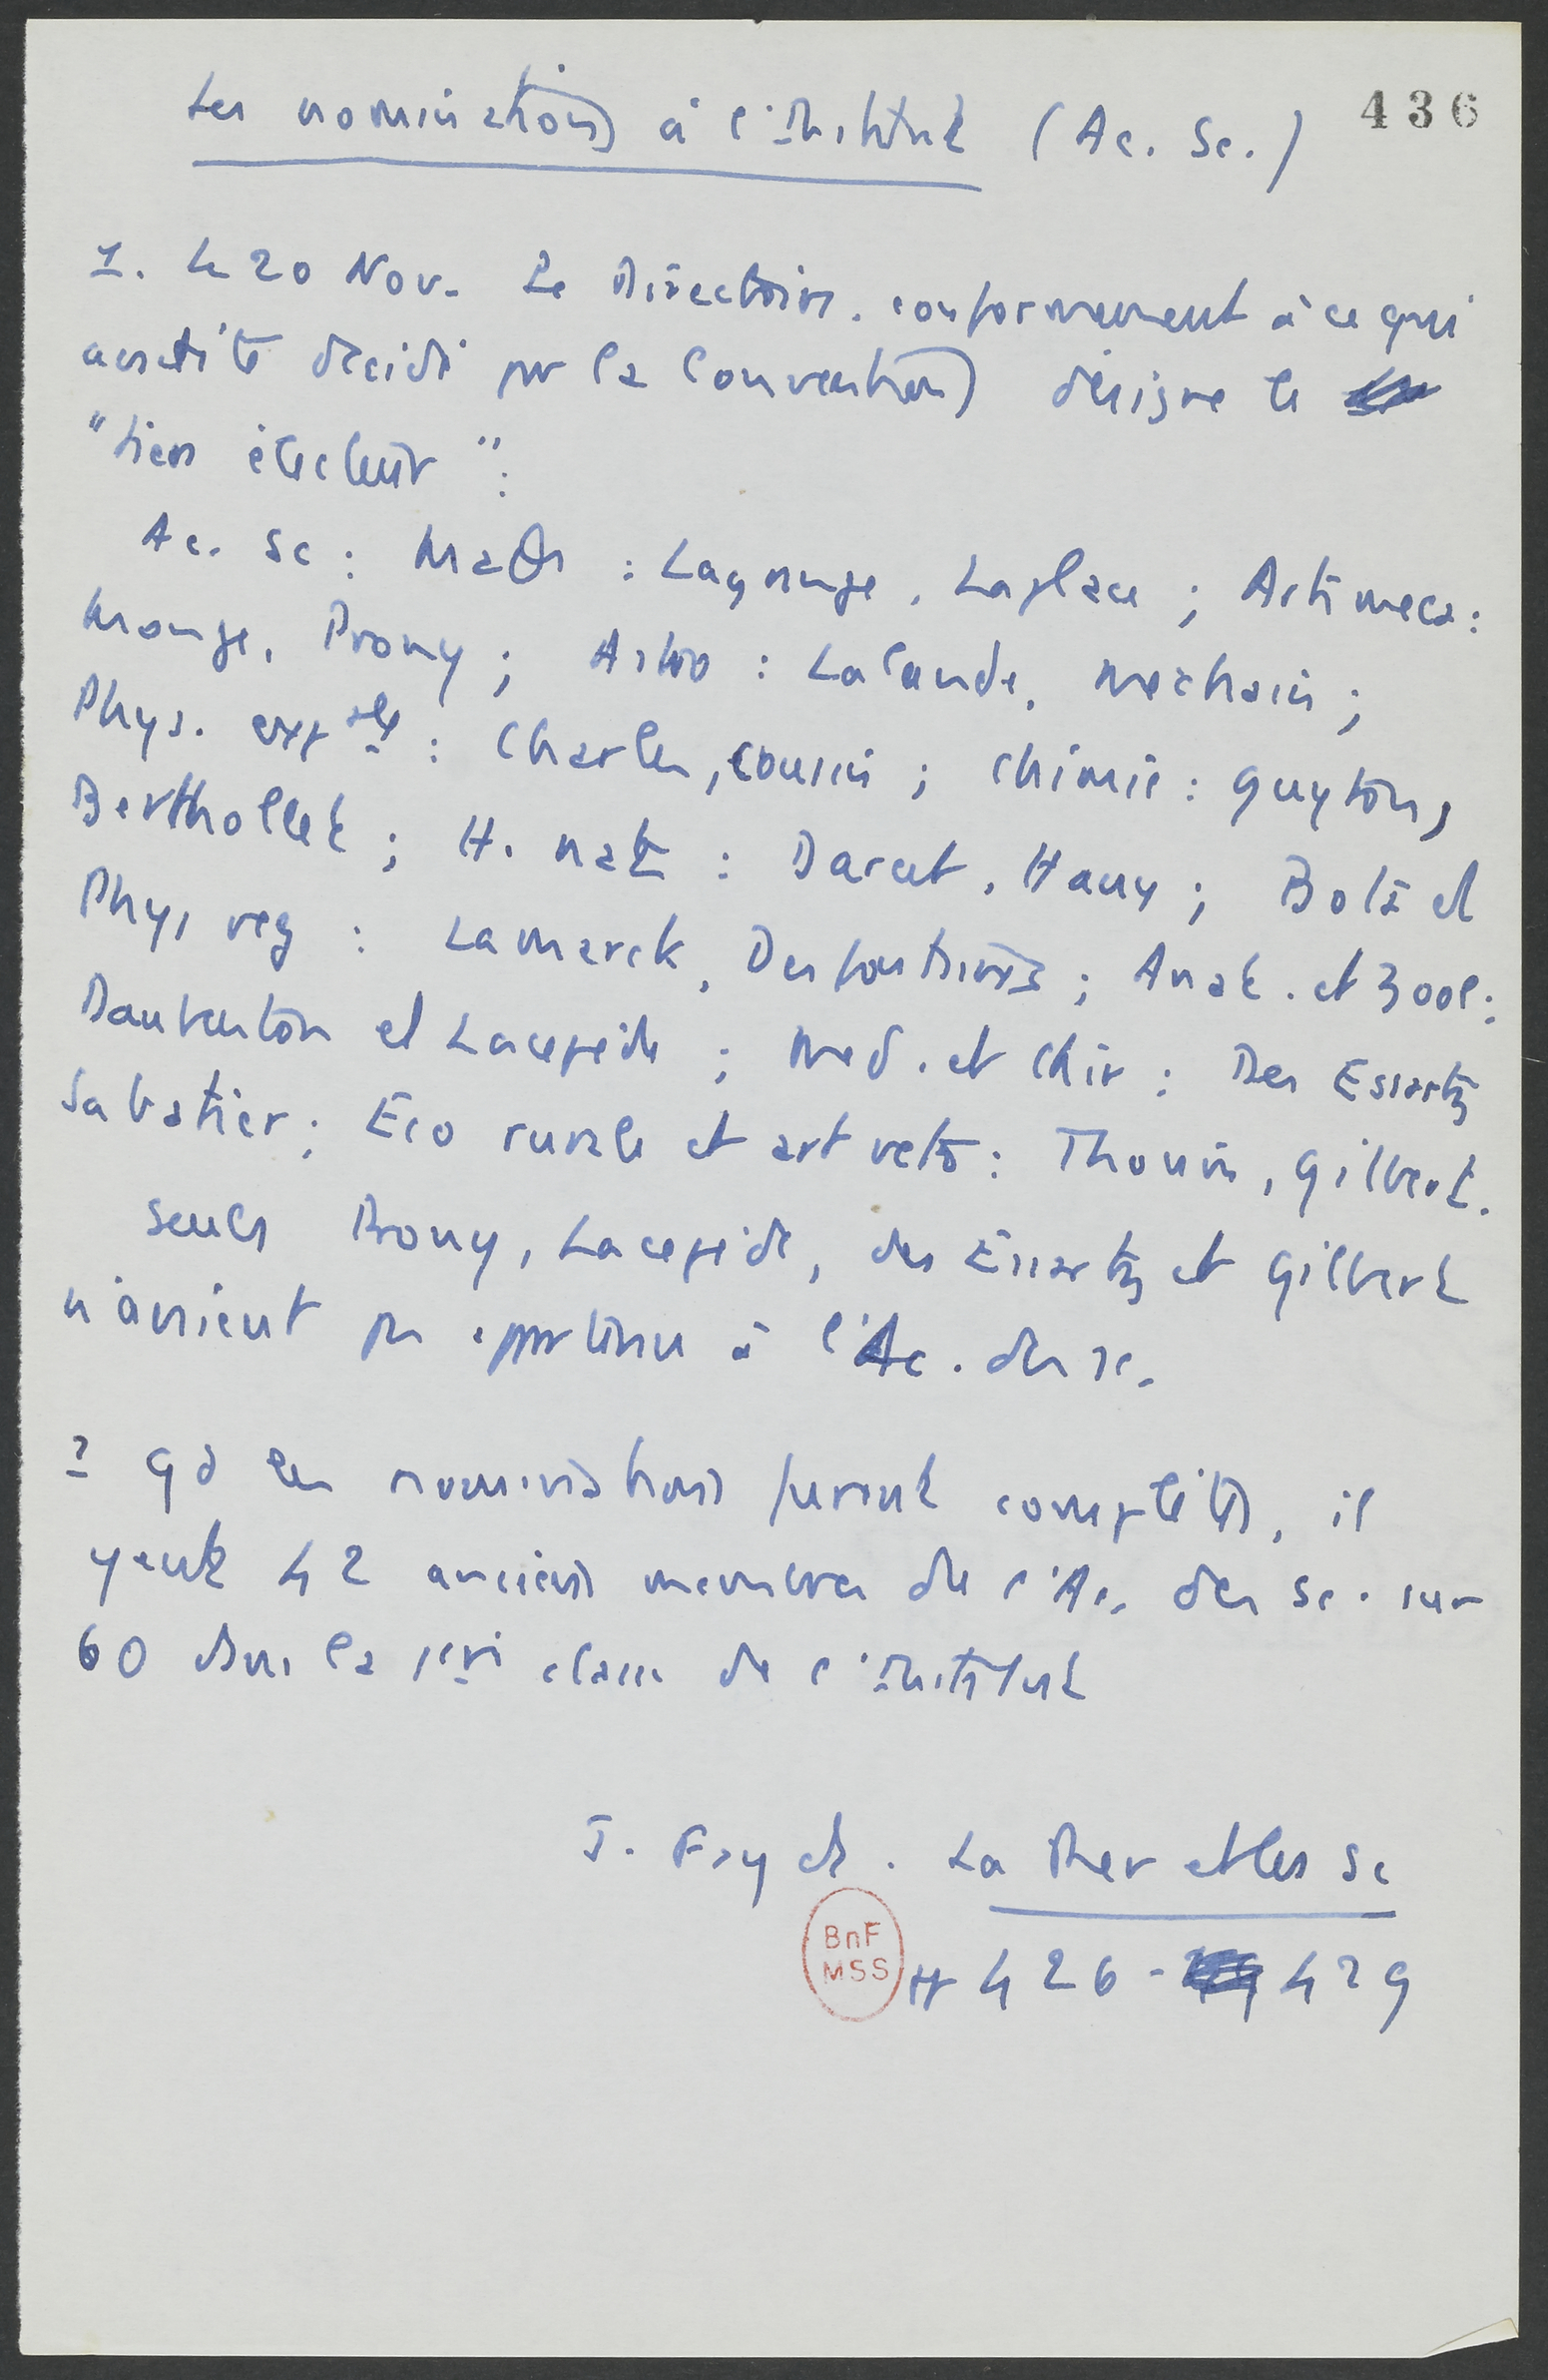 436
Les nominations à l'Institut (Ac. Sc.)
1. Le 20 Nov. Le Directoire, conformement à ce qui
avait été décidé par la Convention désigne le
"tiers électeur":
Ac. Sc : Maths : Lagrange, Laplace ; Arts meca :
Monge, Prony ; Astro : Lalande, Mechain ;
Phys. exptale : Charles, Cousin ; Chimie : Guyton,
Berthollet ; H. nat : Darcet, Hauy ; Bota et
Phys veg : Lamarck, Desfontaines ; Anat. et Zool :
Daubenton et Lacepède ; Med. et Chir : Des Essartz
Sabatier ; Eco rurale et art veto : Thouin, Gilbert.
Seuls Prony, Lacepède, des Essartz et Gilbert
n'avaient pas appartenu à l'Ac. des sc.
2 Qd les nominations furent complétés, il
y eut 42 anciens membres de l'Ac. des Sc. sur
60 dans la 1ère classe de l'Institut
J. Fayet. La Rev et les Sc
BnF
MSS
pp 426-429